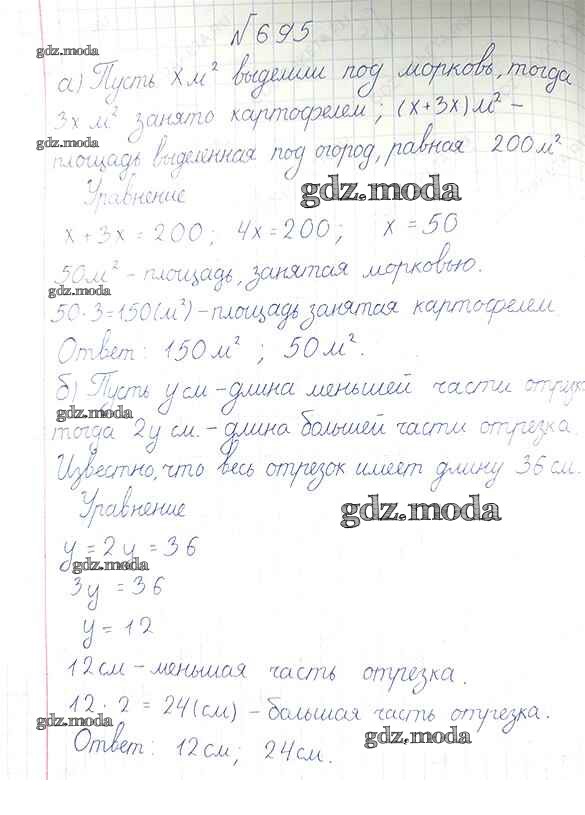 №695
gdz.moda
а) Пусть х м² выделили под морковь, тогда
3х м² занято картофелем; (х+3х) м² –
gdz.moda
площадь выделенная под огород, равная 200 м²
Уравнение
gdz.moda
х + 3х = 200; 4х = 200; х = 50
50 м² – площадь, занятая морковью.
gdz.moda
50·3=150(м²) – площадь занятая картофелем
Ответ: 150 м² ; 50 м².
б) Пусть у см – длина меньшей части отрезк
gdz.moda
тогда 2у см. – длина большей части отрезка.
Известно, что весь отрезок имеет длину 36 см.
Уравнение
gdz.moda
у = 2у = 36
gdz.moda
3у = 36
у = 12
12 см – меньшая часть отрезка.
12 · 2 = 24 (см) – большая часть отрезка.
gdz.moda
Ответ: 12 см; 24 см.
gdz.moda